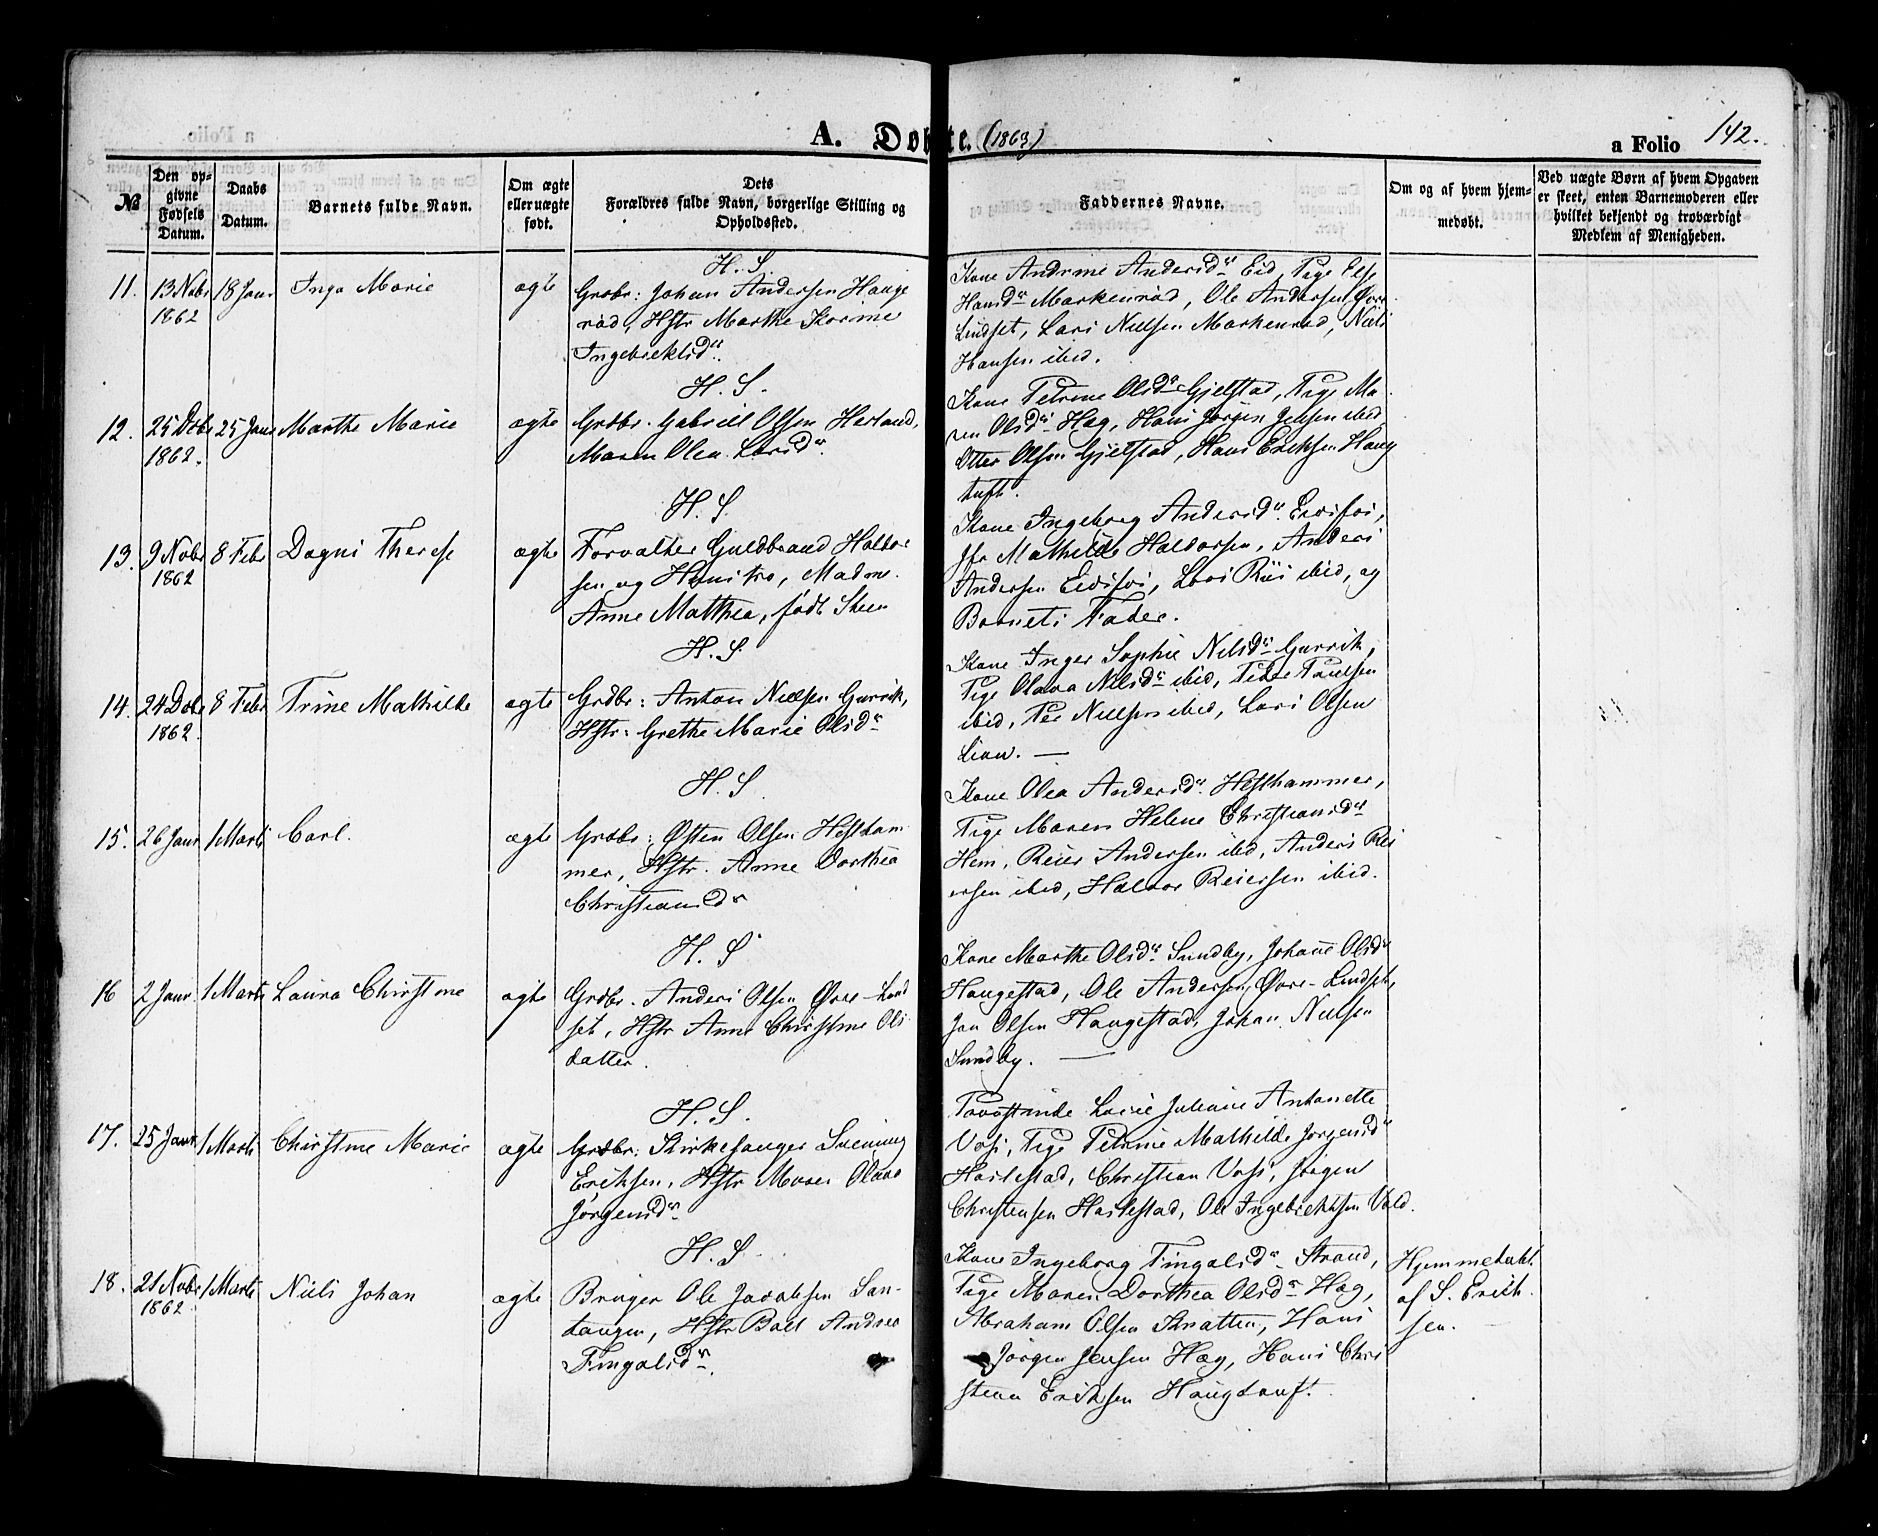 A. Døbte. (1863)
a Folio 142.
№
Den op-
givne
Fødsels
Datum.
Daabs
Datum.
Barnets fulde Navn.
Om ægte
eller uægte
født.
Dets
Forældres fulde Navn, borgerlige Stilling og
Opholdssted.
Faddernes Navne.
Om og af hvem hjem-
medøbt.
Ved uægte Børn af hvem Opgaven
er skeet, enten Barnemoderen eller
hvilket bekjendt og troværdigt
Medlem af Menigheden.
H. S.
11. 13 Nobr 1862 18 Janr Inga Marie ægte
Grdbr: Johan Andersen Hauge
rød, Hstr Marthe Karine
Ingebrektsdr.
Kone Andrine Andersdr Eid, Pige Else
Hansdr Markenrød, Ole Andersen Øvre
Lindset, Lars Nielsen Markenrød, Niels
Hansen ibid.
H. S.
12. 25 Debr 1862. 25 Janr Marthe Marie ægte
Grdbr. Gabriel Olsen Hesland,
Maren Olea Larsdr.
Kone Petrine Olsdr Gjelstad, Pige Ma
ren Olsdr Hæg, Hans Jørgen Jensen ibid
Otter Olsen Gjelstad, Hans Eriksen Haug
tuft.
H. S.
13. 9 Nobr 1862 8 Febr Dagni Therese ægte
Forvalter Guldbrand Haldor
sen og Hustro, Madm.
Anne Mathea, født Steen
Kone Ingeborg Andersdr. Eidsfos,
Jfr Mathilde Haldorsen, Anders
Andersen Eidsfos, Lars Riis ibid, og
Barnets Fader.
H. S.
14. 24 Debr 1862. 8 Febr Trine Mathilde ægte
Grdbr: Anton Nielsen Gurrik,
Hstr: Grethe Marie Olsdr
Kone Inger Sophie Nilsdr Gurrik,
Pige Olava Nilsdr ibid, Peder Paulsen
ibid, Per Nielsen ibid, Lars Olsen
Lian. —
H. S.
15. 26 Janr 1 Marts Carl. ægte
Grdbr: Østen Olsen Hestham
mer, Hstr. Anne Dorthea
Christiansdr
Kone Olea Andersdr. Hesthammer,
Pige Maren Helene Christiansdr
Hem, Reier Andersen ibid, Anders Rei
ersen ibid, Haldor Reiersen ibid.
H. S
16 2 Janr. 1 Marts Laura Christine ægte
Grdbr. Anders Olsen Øvre-Lind
set, Hstr Anne Christine Ols
datter.
Kone Marthe Olsdr Sundby, Johane Olsdr
Haugestad, Ole Andersen, Øvre-Lindset,
Jan Olsen Haugestad, Johan Nielsen
Sundby. —
H. S.
17. 25 Janr 1 Marts Christine Marie ægte
Grdbr: Kirkesanger Svening
Eriksen, Hstr Maren Olava
Jørgensdr.
Provstinde Lovise Juliane Antonette
Voss, Pige Petrine Mathilde Jørgensdr
Harlestad, Christian Voss, Jørgen
Christensen Harlestad, Ole Ingebrektsen Vold.
H. S.
18. 21 Nobr 1862 1 Marts Niels Johan ægte
Bruger Ole Jacobsen San-
tangen, Hstr Boel Andrea
Fingalsdr.
Kone Ingeborg Fingalsdr. Strand,
Pige Maren Dorthea Olsdr Hæg,
Abraham Olsen Knatten, Hans
Jørgen Jensen Hæg, Hans Chri
stian Eriksen Haugtuft.
Hjemmedøbt
af S. Erik
sen.